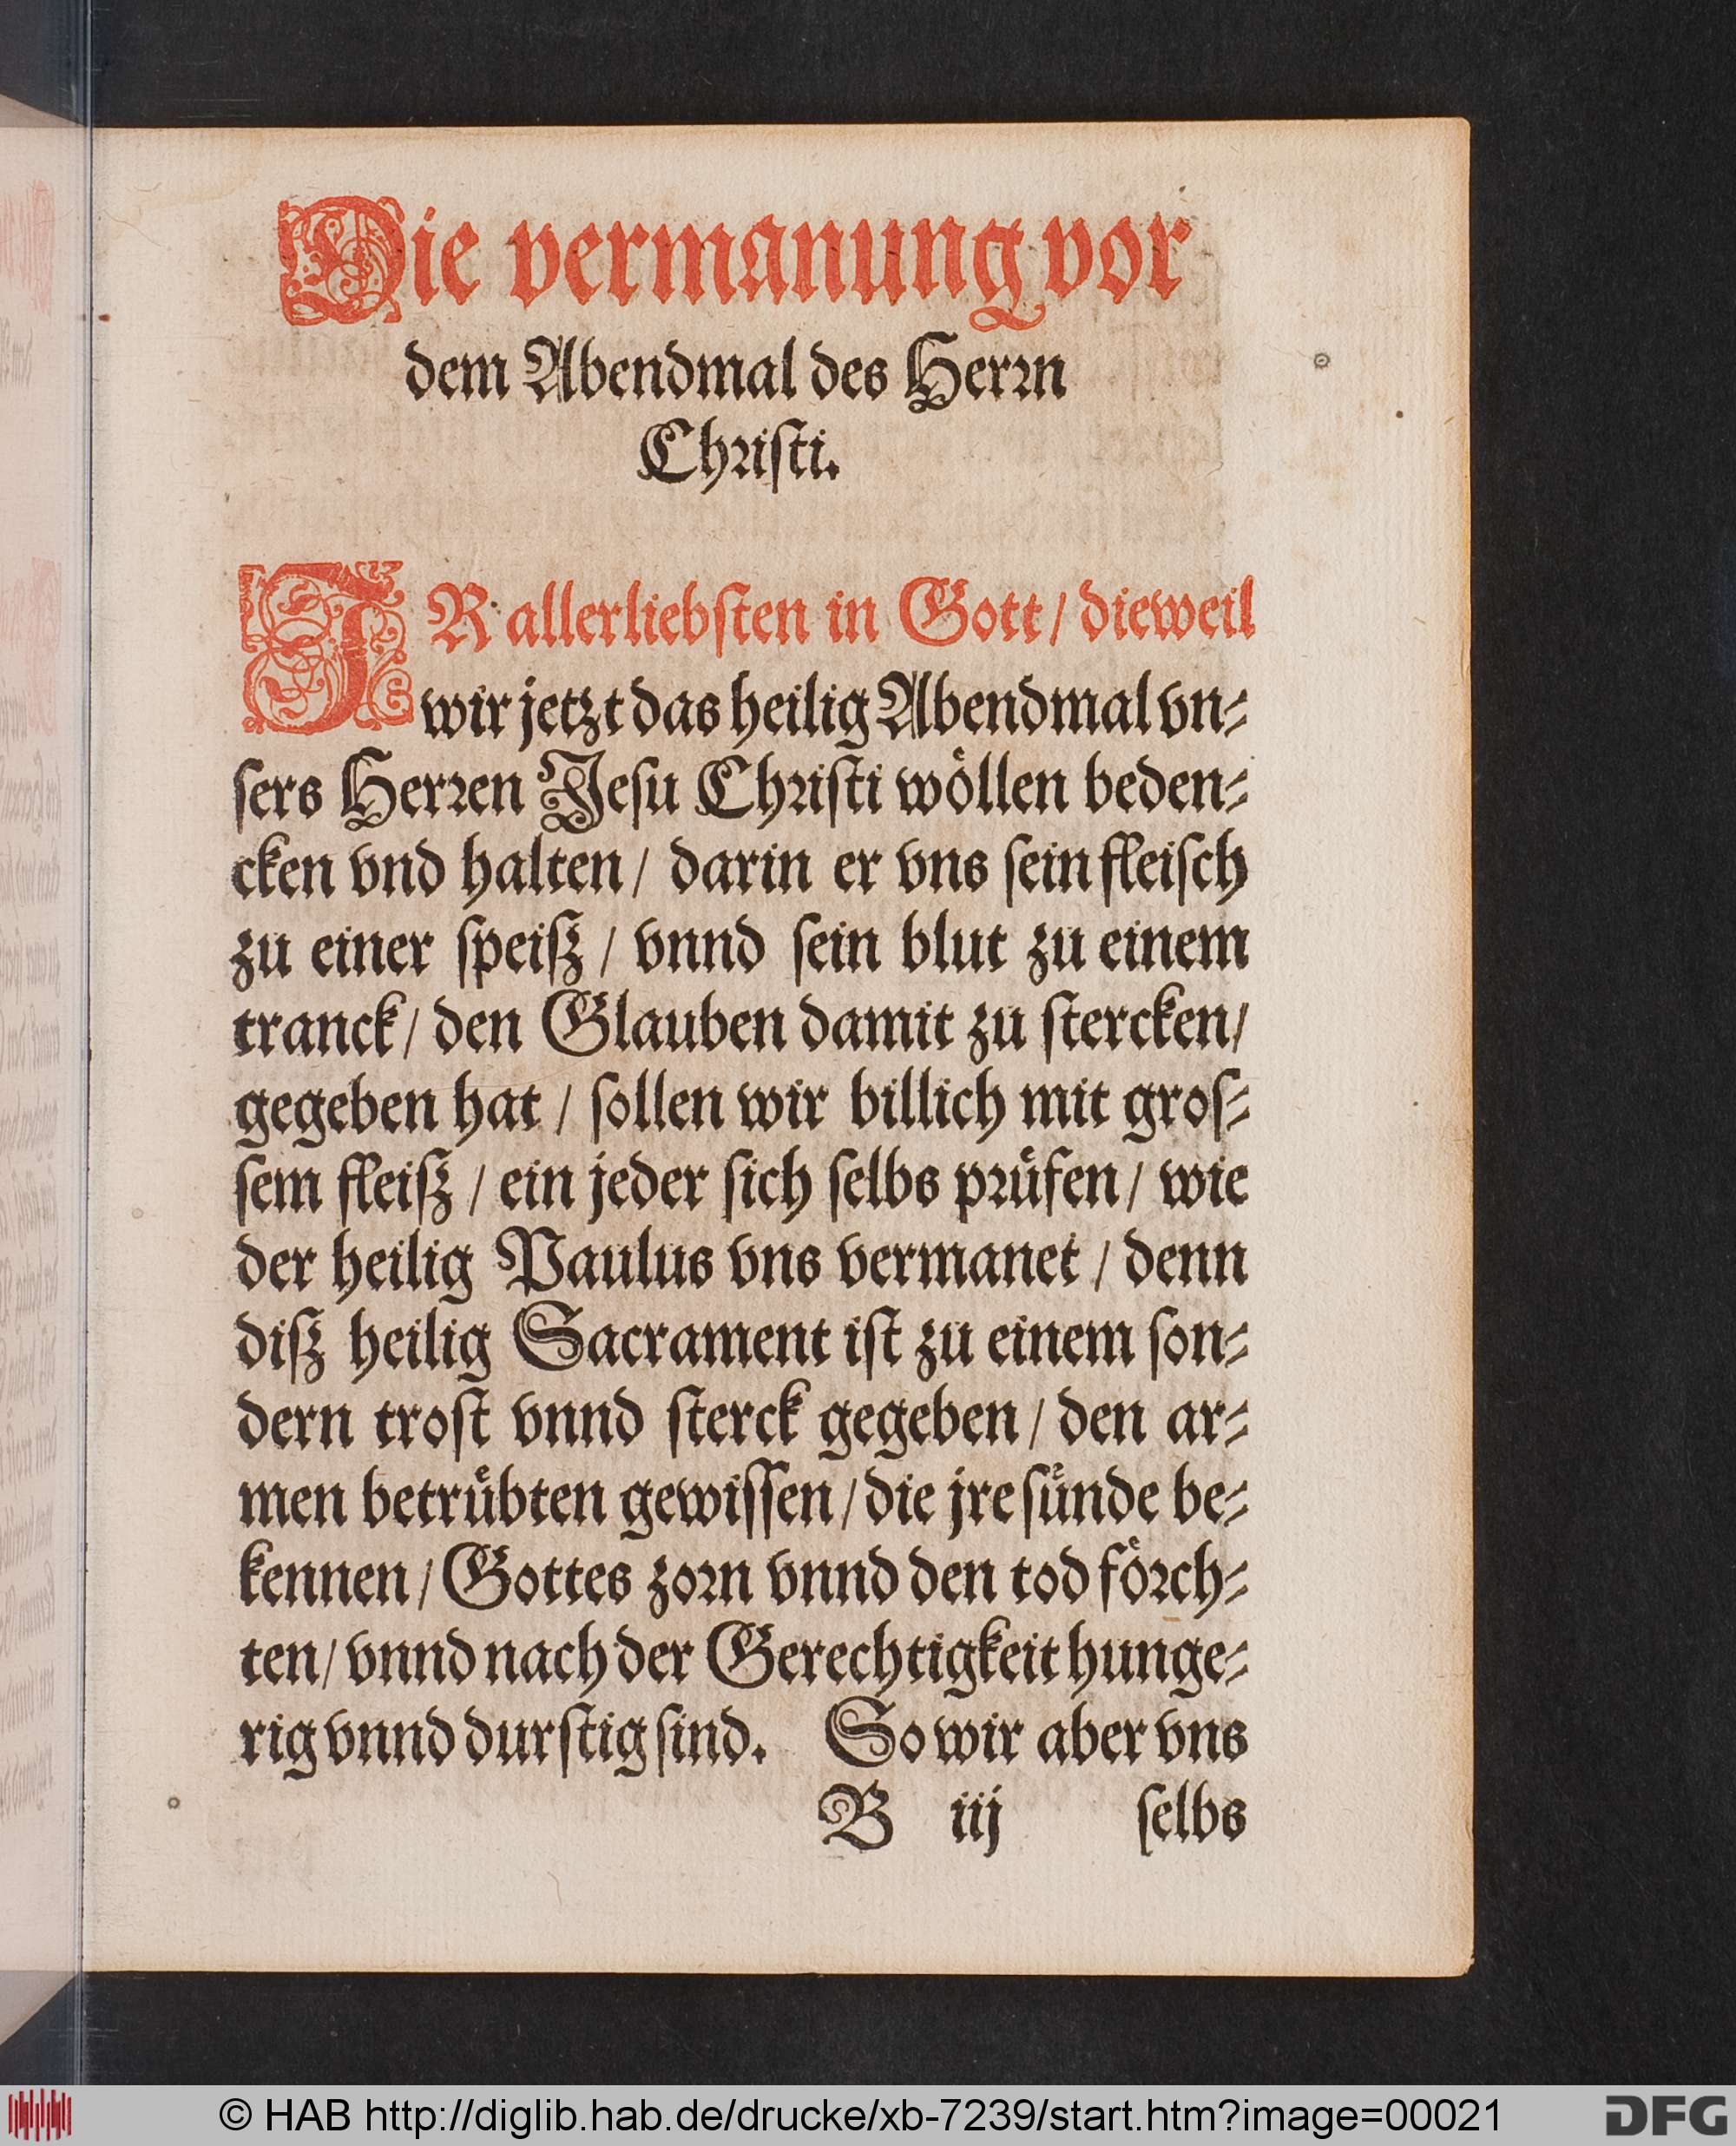 Die vermanung vor
dem Abendmal des Herꝛn
Chꝛiſti.
IR allerliebſten in Gott / dieweil
wir jetzt das heilig Abendmal vn⸗
ſers Herꝛen Jeſu Chꝛiſti woͤllen beden⸗
cken vnd halten / darin er vns ſein fleiſch
zu einer ſpeiſz / vnnd ſein blut zu einem
tranck / den Glauben damit zu ſtercken /
gegeben hat / ſollen wir billich mit groſ⸗
ſem fleiſz / ein jeder ſich ſelbs pꝛuͤfen / wie
der heilig Paulus vns vermanet / denn
diſz heilig Sacrament iſt zu einem ſon⸗
dern troſt vnnd ſterck gegeben / den ar⸗
men betruͤbten gewiſſen / die jre ſuͤnde be⸗
kennen / Gottes zoꝛn vnnd den tod foͤꝛch⸗
ten / vnnd nach der Gerechtigkeit hunge⸗
rig vnnd durſtig ſind. So wir aber vns
B iij ſelbs
© HAB http://diglib.hab.de/drucke/xb-7239/start.htm?image=00021
DFG